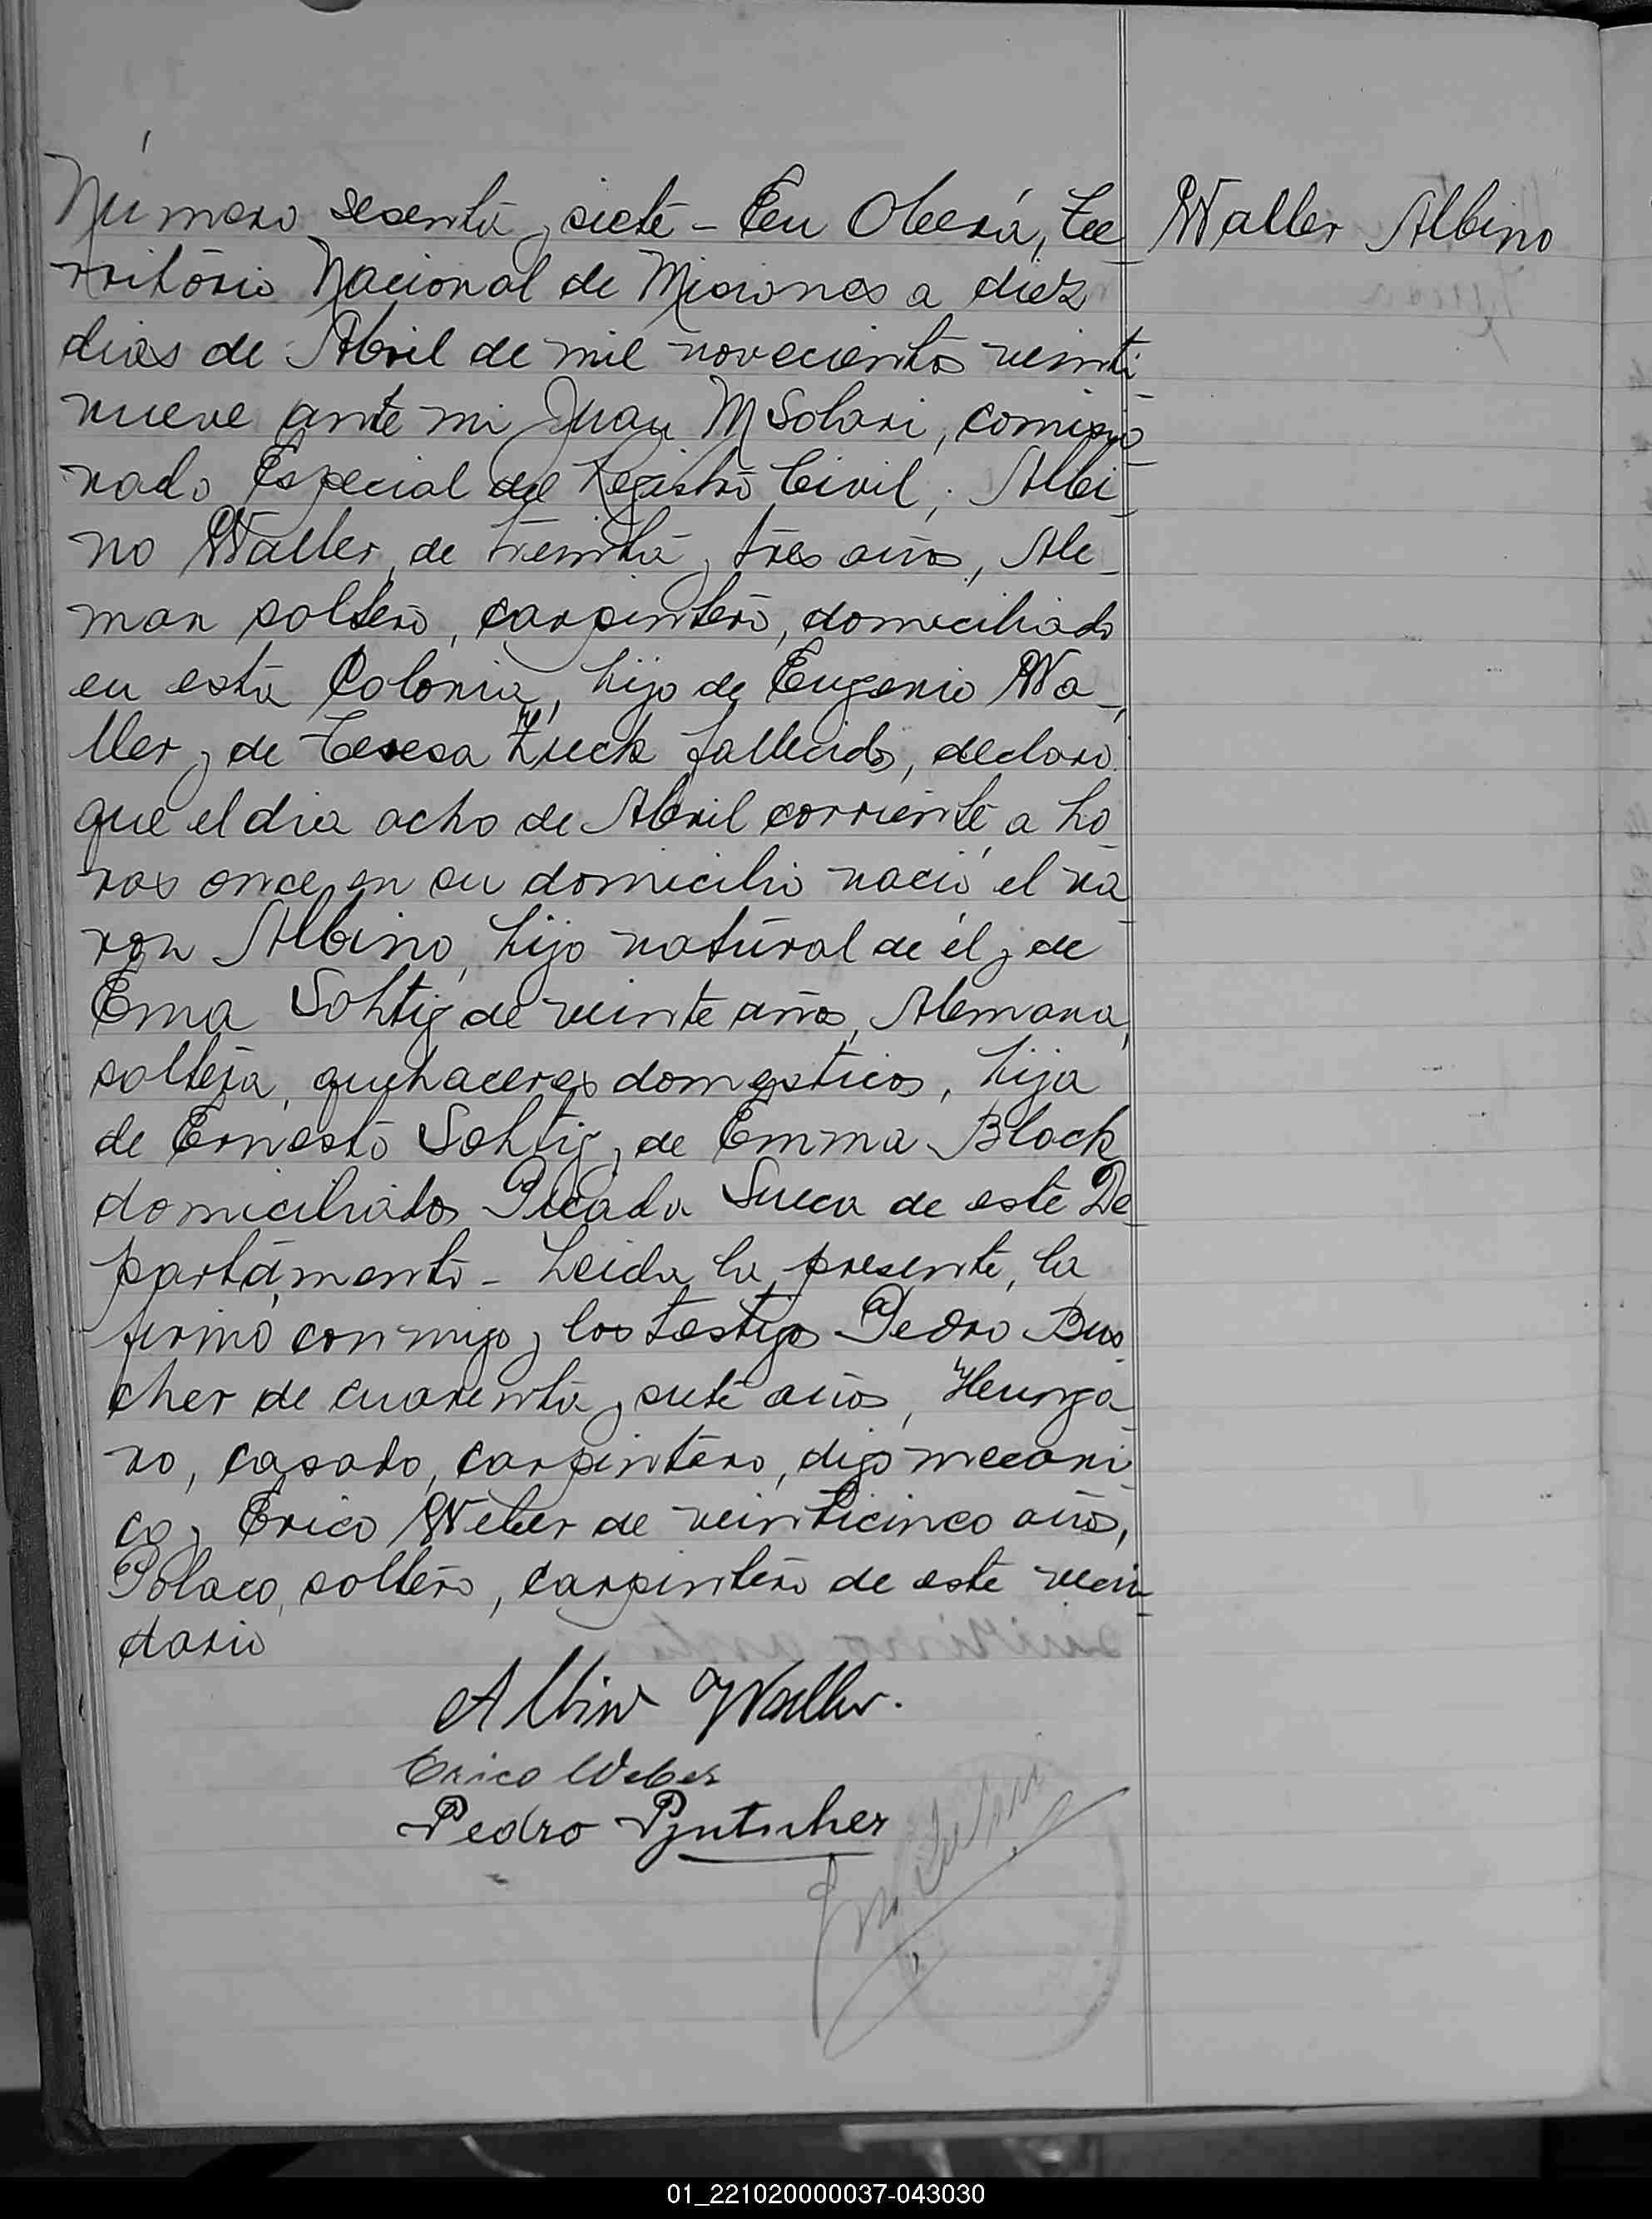 Número sesenta y siete - En Oberá, Te_
rritório Nacional de Misiones a diez
dias de Abril de mil novecientos veinti_
nueve ante mi Juan M Solari, comisio_
nado Especial del Registro Civil, Albi_
no Waller, de treinta y tres años, Ale_
man soltero, carpintero, domiciliado
en esta Colonia, hijo de Eugenio Wa_
ller y de Teresa Zuck fallecidos, declaro
que el dia acho de Abril corriente a ho
ras once, en su domicilio nació el va_
ron Albino, hijo natural de él y de
Ema Sohtig de veinte años, Alemana,
soltera, quehaceres domesticos, hija
de Ernesto Sohtig y de Emma Block
domiciliados Picada Sueca de este De_
partamento - Leida la presente, la
firmó conmigo y los testigos Pedro Bus_
cher de cuarenta y siete años, Hunga_
ro, casado, carpintero, digo mecani_
co y Erico Weber de veinticinco años,
Polaco, soltero, carpintero de este vecin_
dario
Waller Albino
Albin Waller.
Erico Weber
Pedro
01_221020000037-043030